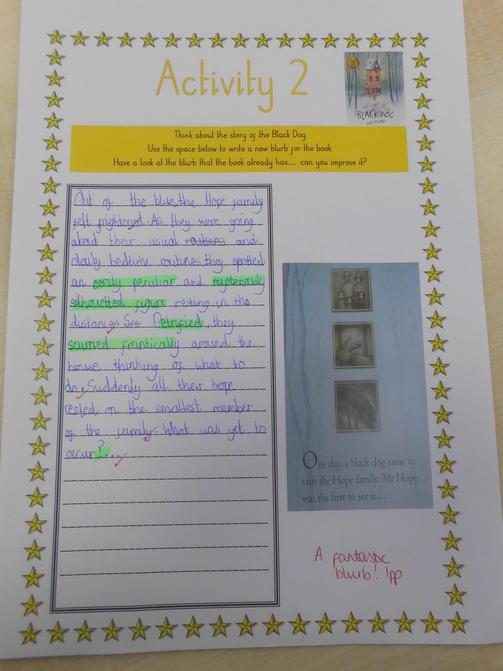 Activity 2
BLACK DOG
Think about the story of the Black Dog.
Use the space below to write a new blurb for the book.
Have a look at the blurb that the book already has... can you improve it?
Out of the blue, the Hope family
felt frightened. As they were going
about their usual routines and
daily bedtime routines they spotted
an eerily peculiar and mysteriously
silhouetted figure resting in the
distance. See Petrified, they
scurried frantically around the
house thinking of what to
do. Suddenly all their hope
rested on the smallest member
of the family. What was yet to
occur?...
One day, a black dog came to
visit the Hope family. Mr Hope
was the first to see it...
A fantastic
blurb! 1pp